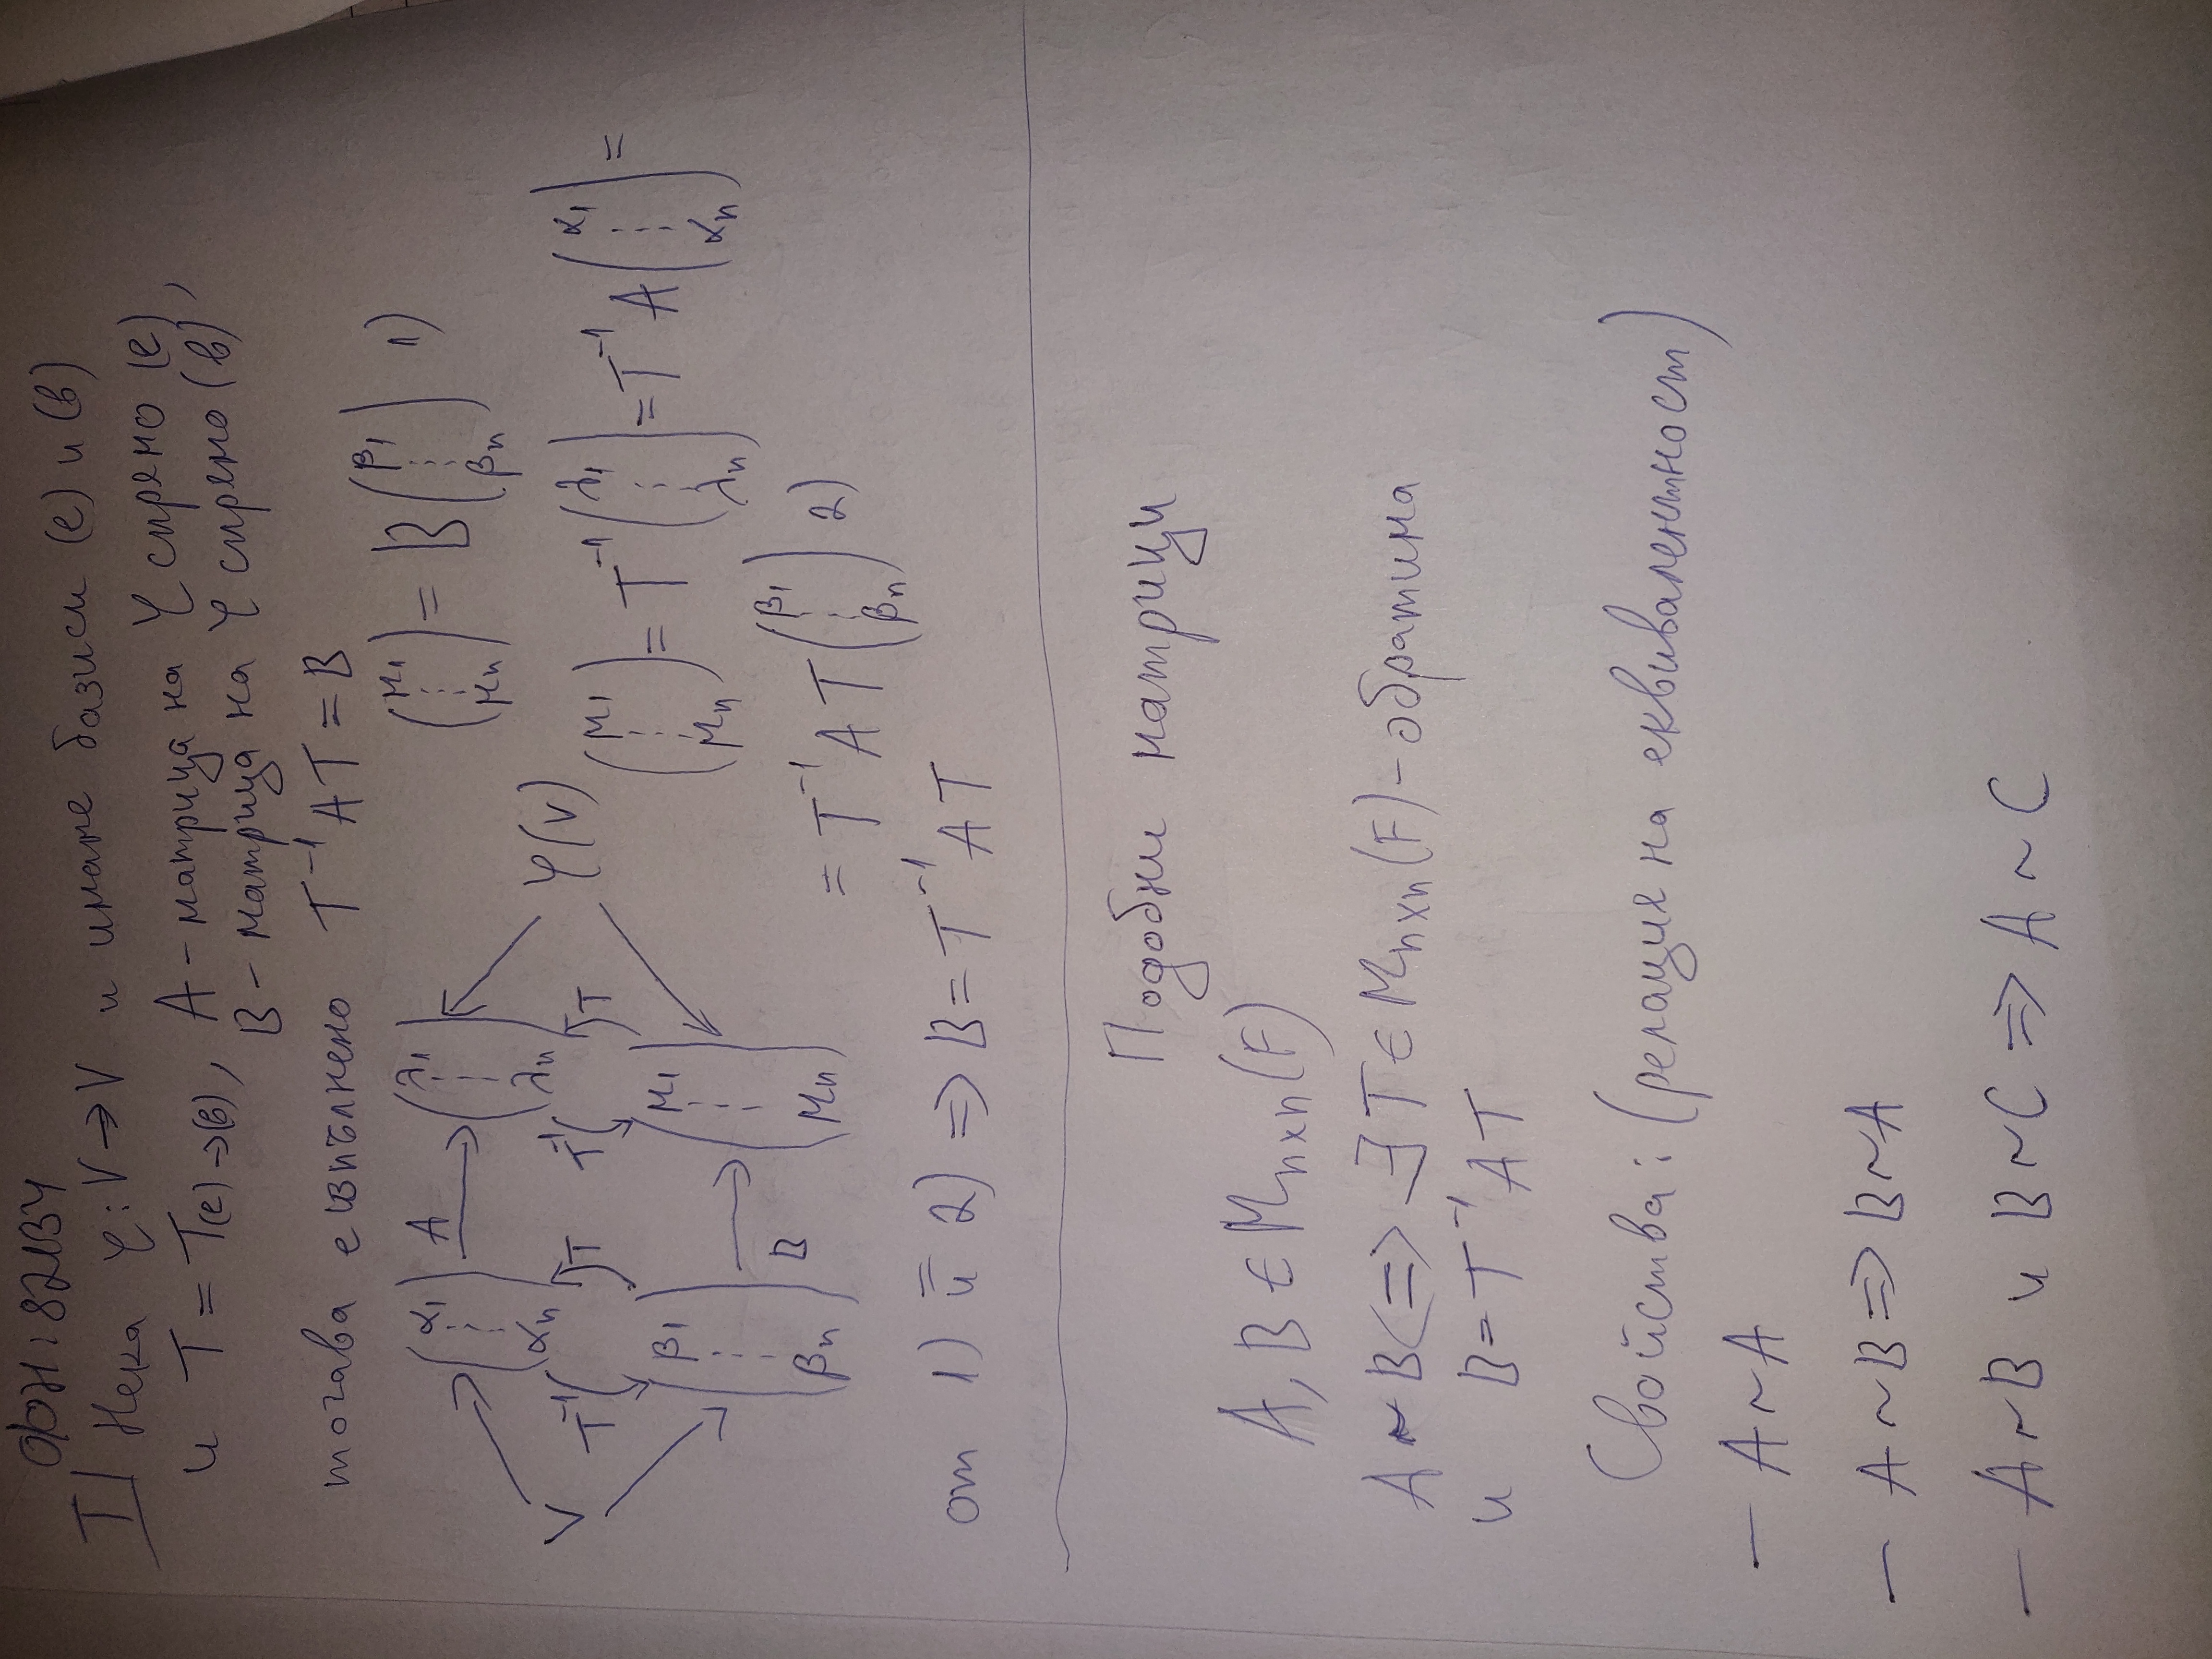 ФН: 82134
I| Нека φ: V → V и имаме базиси (e) и (в)
и T = T(e)→(в), A - матрица на φ спрямо (e),
B - матрица на φ спрямо (в)
тогава е изпълнено T⁻¹AT = B
(α₁ ⋮ αₙ) A → (λ₁ ⋮ λₙ)
(μ₁ ⋮ μₙ) = B (β₁ ⋮ βₙ) 1)
V T⁻¹ T T⁻¹ T φ(V)
(μ₁ ⋮ μₙ) = T⁻¹ (λ₁ ⋮ λₙ) = T⁻¹ A (α₁ ⋮ αₙ) =
(β₁ ⋮ βₙ) B → (μ₁ ⋮ μₙ)
= T⁻¹ A T (β₁ ⋮ βₙ) 2)
от 1) и 2) ⇒ B = T⁻¹ A T
Подобни матрици
A, B ∈ Mₙₓₙ(F)
A ~ B ⟺ ∃ T ∈ Mₙₓₙ(F) - обратима
и B = T⁻¹ A T
Свойства: (релация на еквивалентност)
- A ~ A
- A ~ B ⇒ B ~ A
- A ~ B и B ~ C ⇒ A ~ C